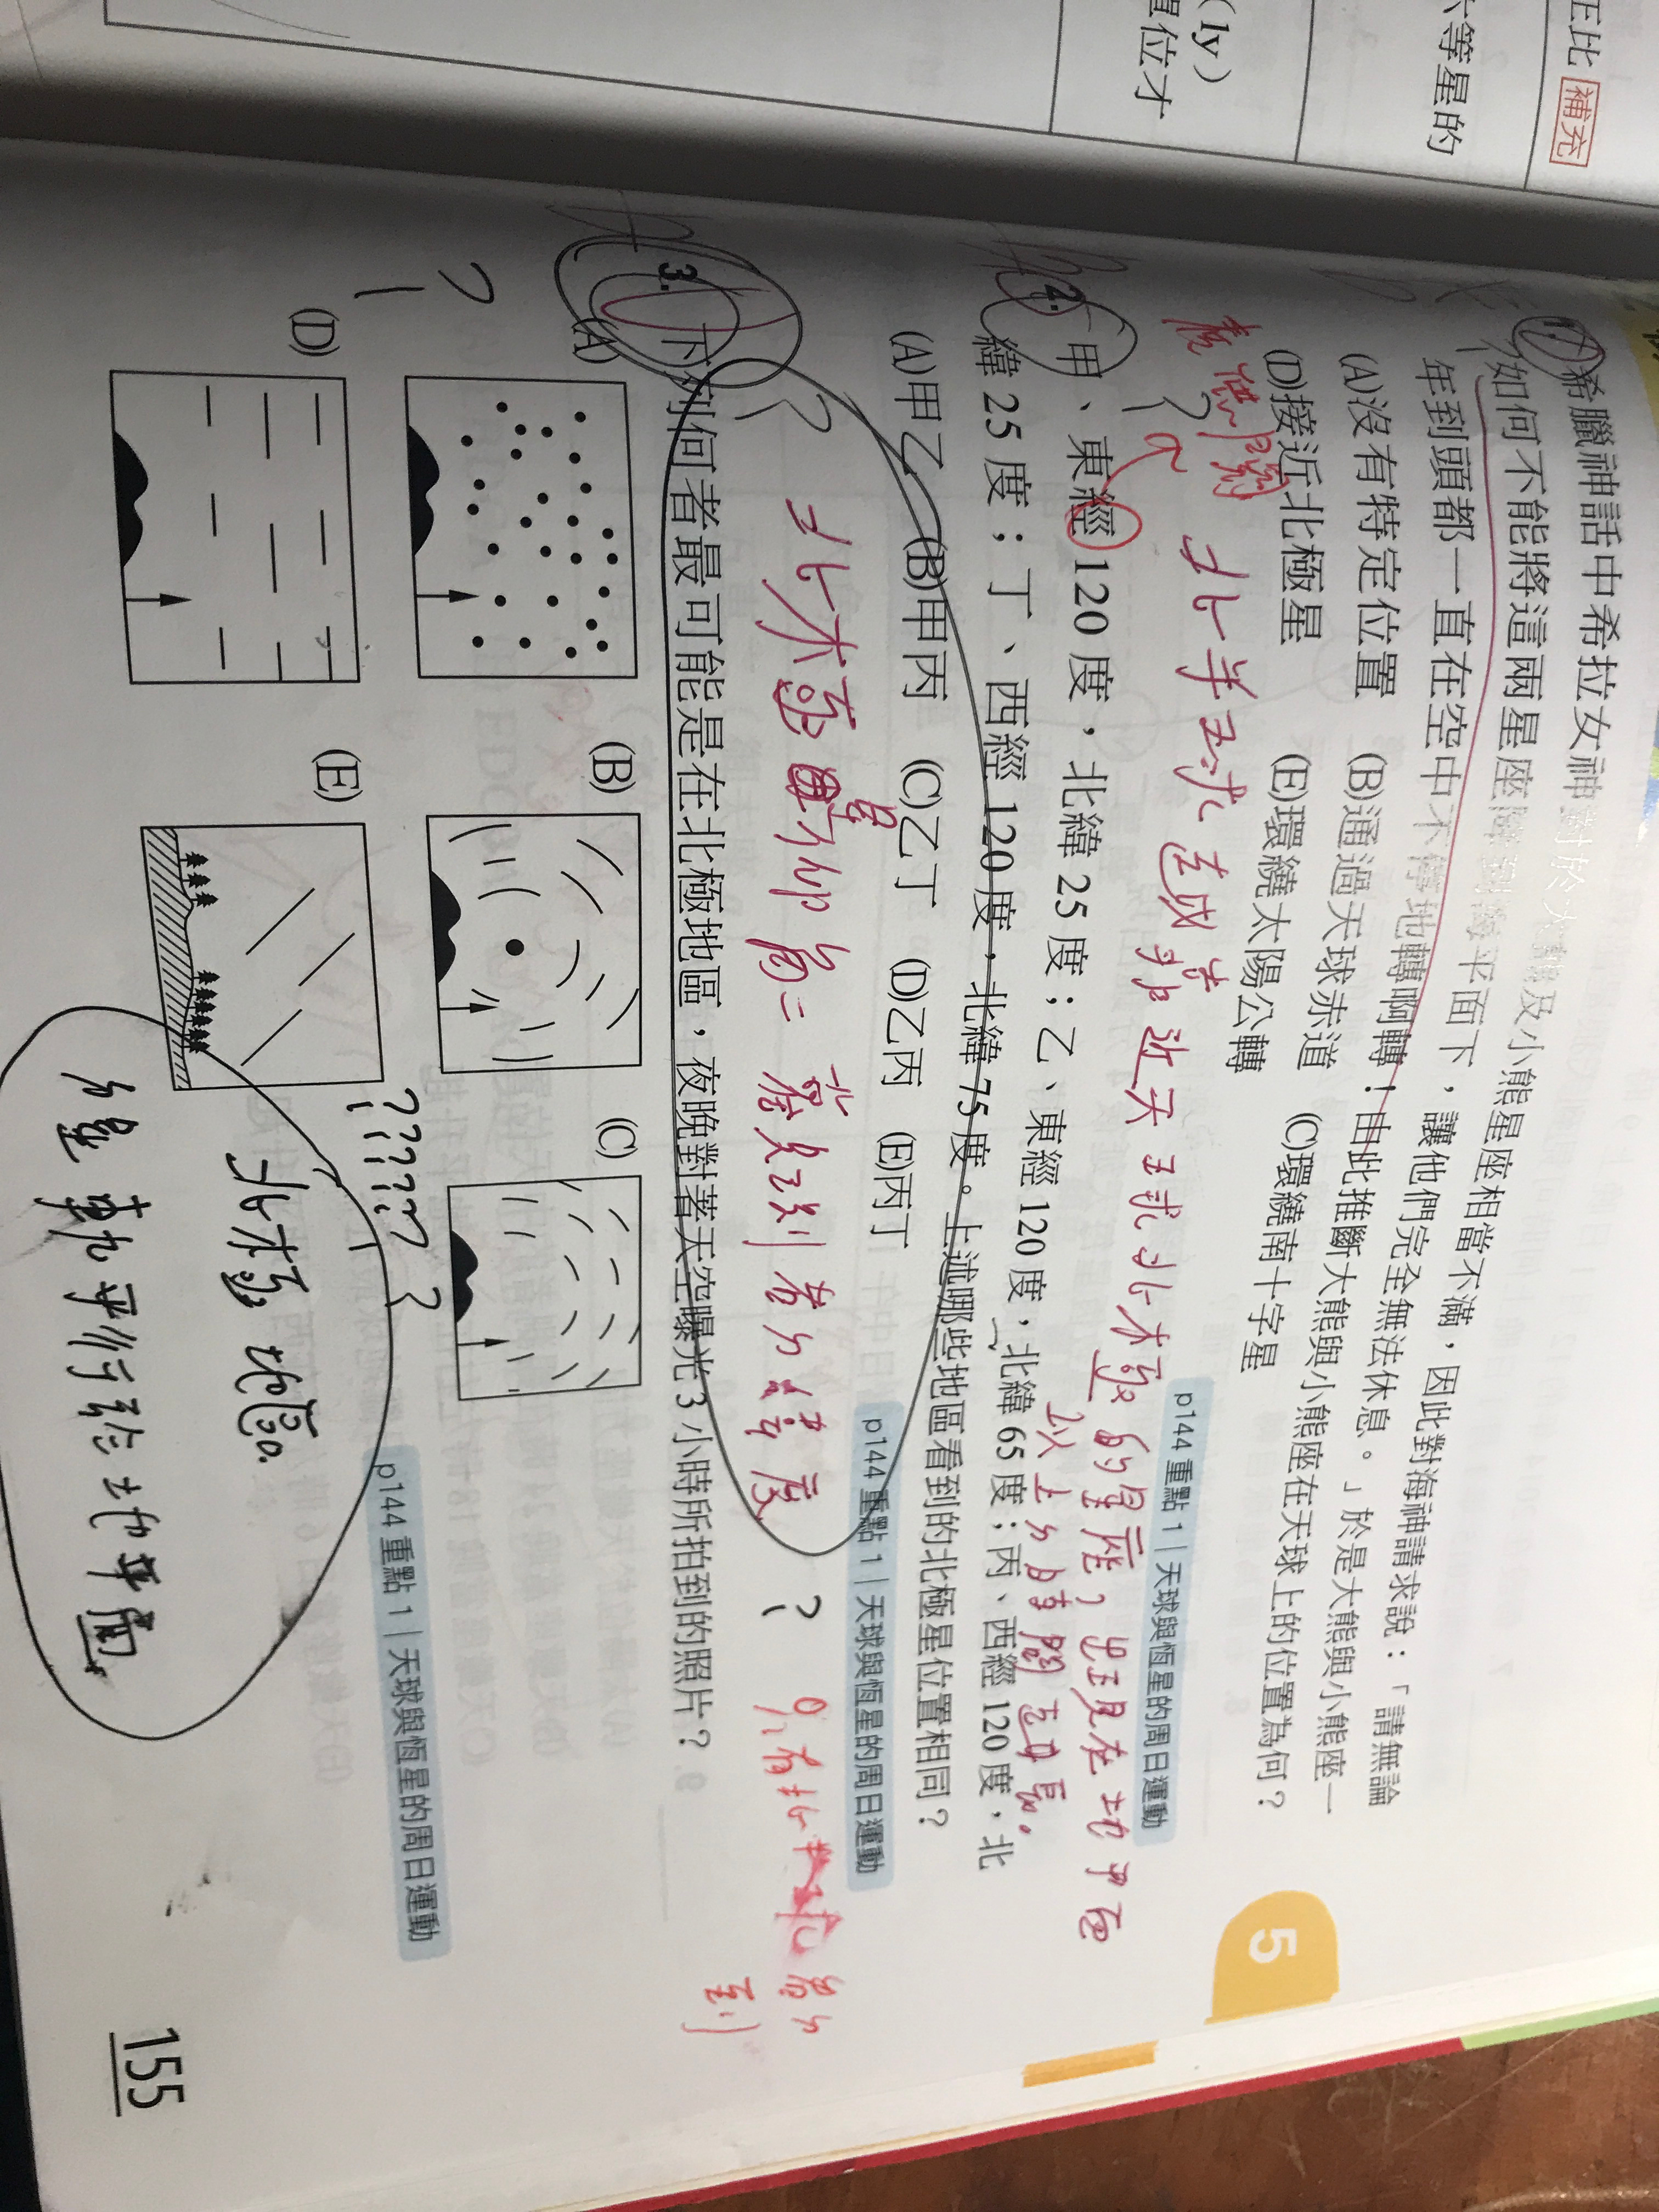 正比 補充
六等星的
(ly)
單位才
5
1. 希臘神話中希拉女神對於大熊及小熊星座相當不滿，因此對海神請求說：「請無論
如何不能將這兩星座降到海平面下，讓他們完全無法休息。」於是大熊與小熊座一
年到頭都一直在空中不停地轉啊轉！由此推斷大熊與小熊座在天球上的位置為何？
(A)沒有特定位置 (B)通過天球赤道 (C)環繞南十字星
(D)接近北極星 (E)環繞太陽公轉
p144 重點 1｜天球與恆星的周日運動
北半球 越靠近天球北極的星座，出現在地平面
以上的時間越長。
2. 甲、東經 120 度，北緯 25 度；乙、東經 120 度，北緯 65 度；丙、西經 120 度，北
緯 25 度；丁、西經 120 度，北緯 75 度。上述哪些地區看到的北極星位置相同？
(A)甲乙 (B)甲丙 (C)乙丁 (D)乙丙 (E)丙丁
p144 重點 1｜天球與恆星的周日運動
北極星仰角=觀測者的緯度
?
3. 下列何者最可能是在北極地區，夜晚對著天空曝光 3 小時所拍到的照片？
(A) (B) (C)
(D) (E)
?????
p144 重點 1｜天球與恆星的周日運動
北極地區
星軌平行於地平面
155